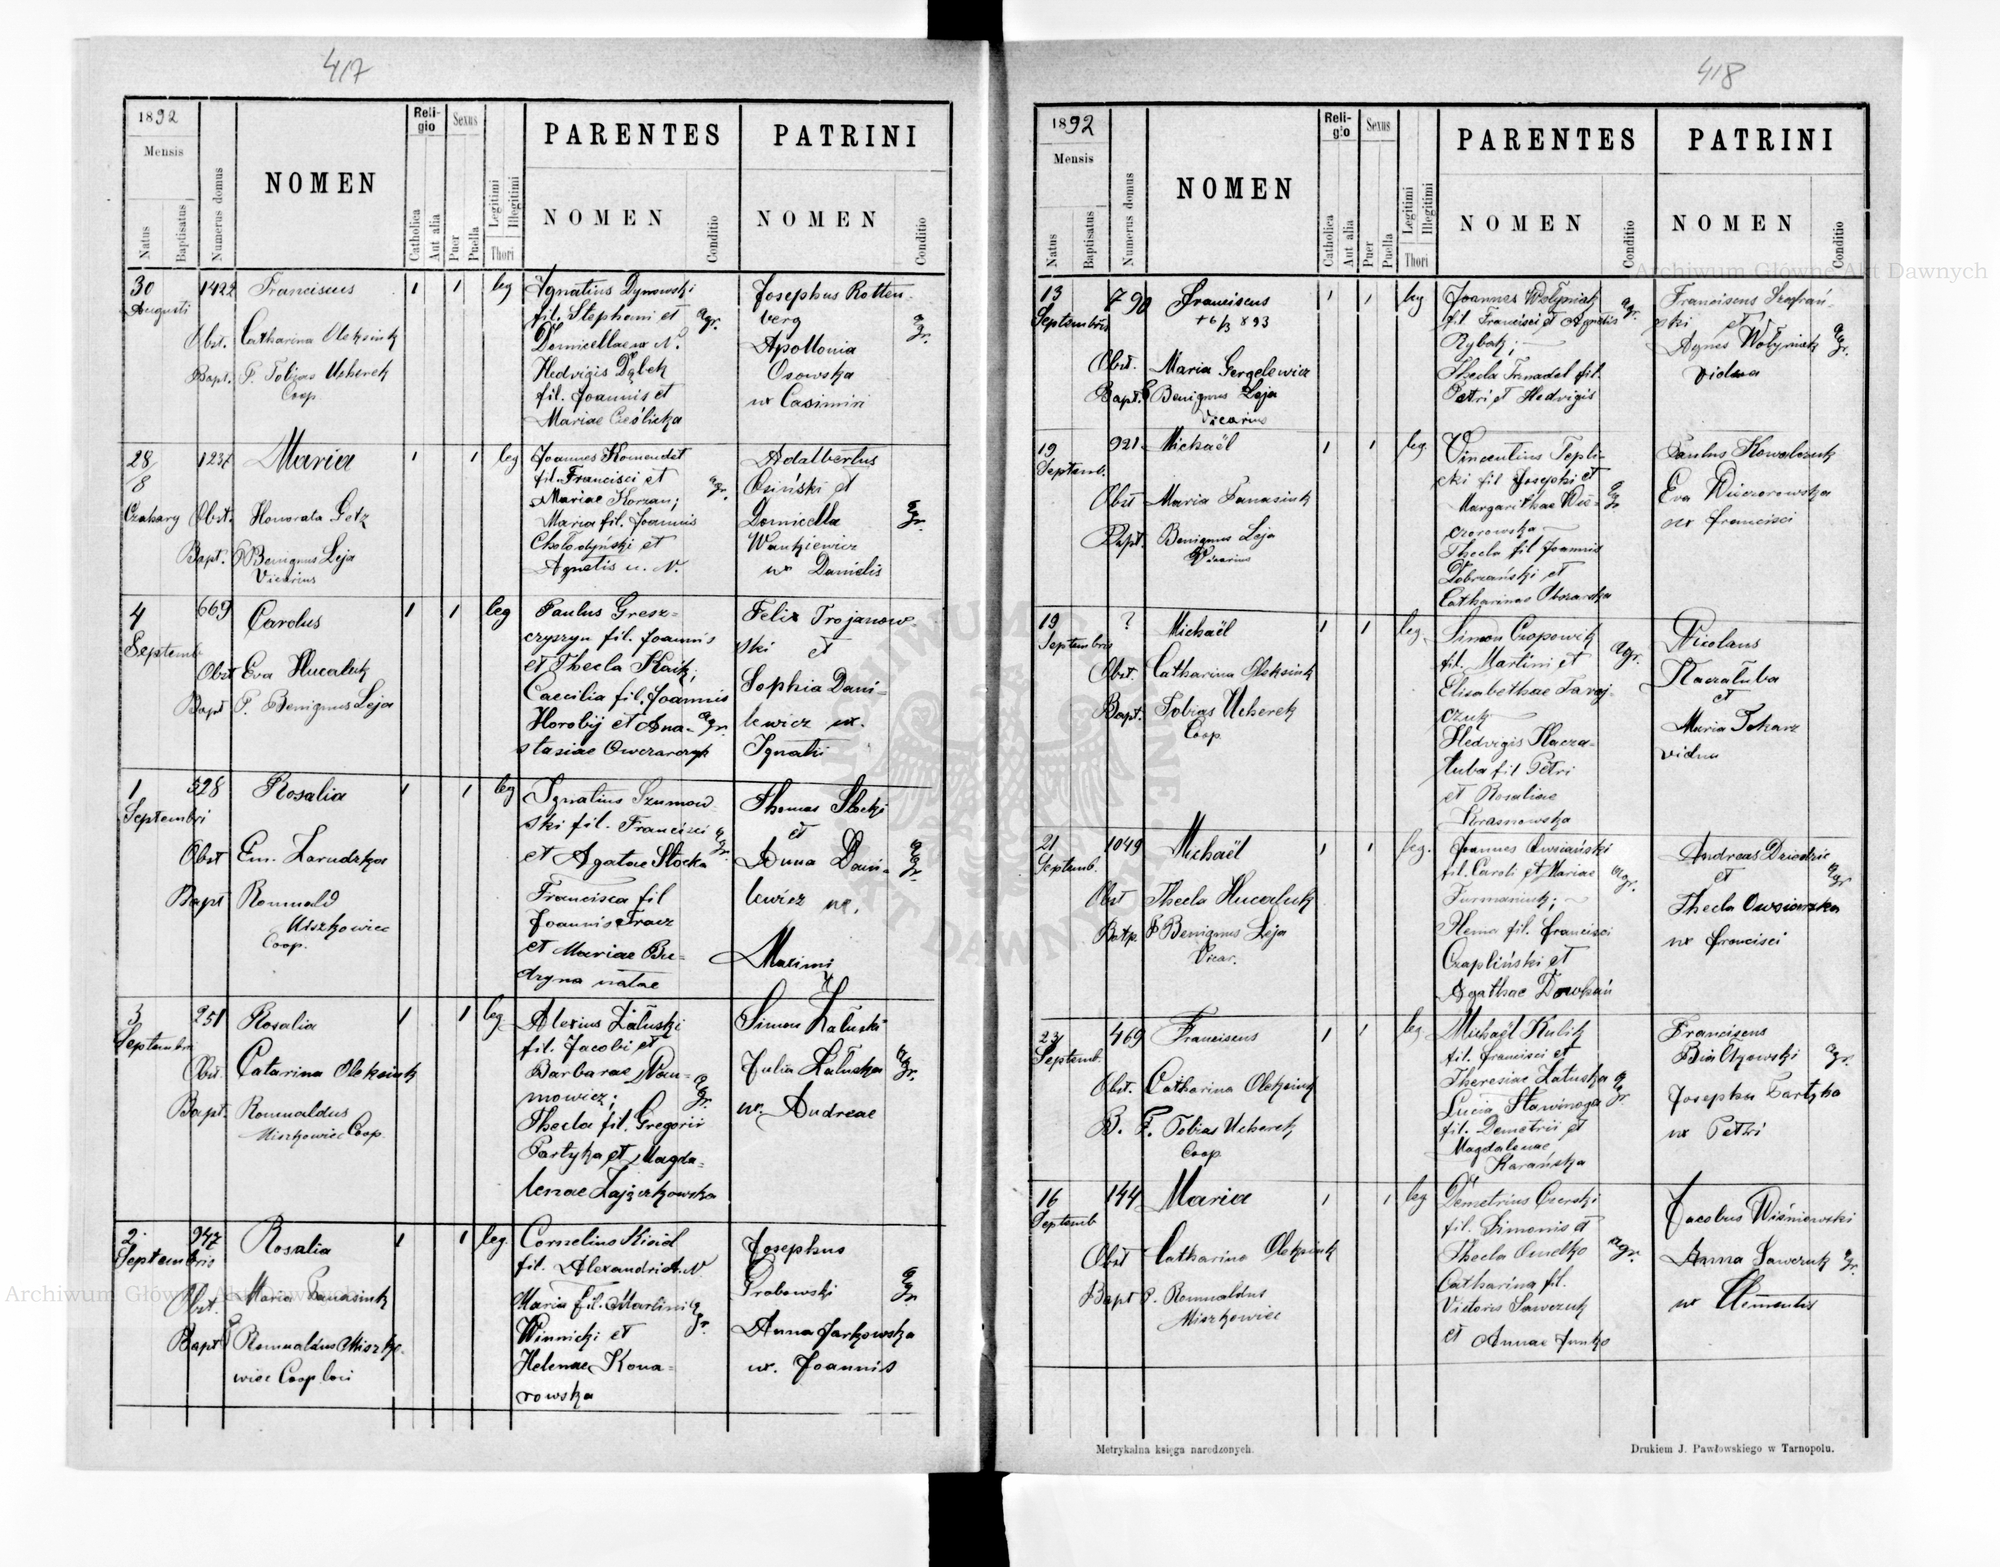 417
1892
Mensis
Natus
Baptisatus
Numerus domus
NOMEN
Reli-
gio
Catholica
Aut alia
Sexus
Puer
Puella
Legitimi
Illegitimi
Thori
PARENTES
NOMEN
Conditio
PATRINI
NOMEN
Conditio
30
Augusti
Franciscus
1 1 leg
Obst. Catharina Oleksiuk
Bapt. P. Tobias Ucherek
Coop
Ignatius Dynowski
fil. Stephani et
Domicellae N.
Hedvigis Dąbek
fil. Joannis et
Mariae Cieślicka
agr.
Josephus Rotten-
berg
Apollonia
Osowska
ux Casimiri
agr.
28/8
Czahary
1237
Maria
1 1 leg
Obst. Honorata Getz
Bapt. P Benignus Leja
Vicarius
Joannes Komendat
fil. Francisci et
Mariae Korzan;
Maria fil. Joannis
Chołodyński et
Agnetis u. N.
agr.
Adalbertus
Osiński et
Domicella
Wankiewicz
ux Danielis
agr.
4
Septemb
669
Carolus
1 1 leg
Obst Eva Hucaluk
Bapt P. Benignus Leja
Paulus Gresz-
czyszyn fil. Joannis
et Thecla Kaik;
Caecilia fil. Joannis
Horobij et Ana-
stasiae Owczarczyk
agr.
Felix Trojanow
ski et
Sophia Dani-
lewicz ux.
Ignatii
1
Septembri
528
Rosalia
1 1 leg
Obst Em. Zarudzka
Bapt Romuald
Miszkowiec
Coop.
Ignatius Szumow-
ski fil. Francisci
et Agatae Słocka
Francisca fil
Joannis Tracz
et Mariae Bu-
dzyna natae
agr.
Thomas Słocki
et
Anna Dani-
lewicz ux.
Maximi
agr.
3
Septembri
251
Rosalia
1 1 leg
Obst. Catarina Oleksiuk
Bapt. Romualdus
Miszkowiec Coop.
Alexius Załuski
fil. Jacobi et
Barbarae Nau-
mowicz;
Thecla fil. Gregorii
Partyka et Magda-
lenae Zajączkowska
agr.
Simon Załuski
Julia Załuska
ux. Andreae
agr.
2
Septembris
947
Rosalia
1 1 leg.
Obst. Maria Panasiuk
Bapt P Romualdus Miszko-
wiec Coop loci
Cornelius Kisiel
fil. Alexandri et N
Maria fil. Martini
Winnicki et
Helenae Kona-
rowska
agr.
Josephus
Grabowski
Anna Jarkowska
ux. Joannis
agr.
418
1892
Mensis
Natus
Baptisatus
Numerus domus
NOMEN
Reli-
gio
Catholica
Aut alia
Sexus
Puer
Puella
Legitimi
Illegitimi
Thori
PARENTES
NOMEN
Conditio
PATRINI
NOMEN
Conditio
13
Septembris
790
Franciscus
+ 6/3 893
1 1 leg
Obst. Maria Gergelewicz
Bapt. P Benignus Leja
Vicarius
Joannes Wołyniak
fil. Francisci et Agnetis
Rybak;
Thecla Trznadel fil.
Petri et Hedvigis
agr.
Franciscus Szafrań
ski et
Agnes Wołyniak
vidua
agr.
19
Septemb.
921
Michaël
1 1 leg
Obst Maria Panasiuk
Bapt. Benignus Leja
Vicarius
Vincentius Tepli-
cki fil Josephi et
Margarithae Wie-
czorowska
Thecla fil Joannis
Dobrzański et
Catharinae Obszarska
agr
Paulus Kowalczuk
Eva Wieczorowska
ux Francisci
19
Septembris
?
Michaël
1 1 leg.
Obst. Catharina Oleksiuk
Bapt. Tobias Ucherek
Coop.
Simon Czopowik
fil. Martini et
Elisabethae Taraj-
czuk
Hedvigis Kacza-
łuba fil Petri
et Rosaliae
Krasnowska
agr.
Nicolaus
Kaczałuba
et
Maria Tokarz
vidua
21
Septemb.
1049
Michaël
1 1 leg.
Obst Thecla Hucaluk
Batp. P Benignus Leja
Vicar.
Joannes Owsiański
fil. Caroli et Mariae
Furmaniuk;
fil. Francisci
Czapliński et
Agathae Dowhań
agr.
Andreas Dziedzic
et
Thecla Owsianska
ux Francisci
agr
23
Septemb.
469
Franciscus
1 1 leg
Obst. Catharina Oleksiuk
B. P. Tobias Ucherek
Coop
Michaël Kulik
fil. Francisci et
Theresiae Załuska
Lucia Sławinoga
fil. Demetrii et
Magdalenae
Karańska
agr
Franciscus
Białkowski
Josepha Partyka
ux Petri
agr.
16
Septemb
144
Maria
1 1 leg
Obst Catharina Oleksiuk
Bapt P. Romualdus
Miszkowiec
Demetrius Czerski
fil. Simonis et
Thecla Omelko
Catharina fil.
Victoris Sawczuk
et Annae Junko
agr.
Jacobus Wiśniewski
Anna Sawczuk
ux Clementis
agr.
Metrykalna księga narodzonych.
Drukiem J. Pawłowskiego w Tarnopolu.
Archiwum Główne Akt Dawnych
Archiwum Główne Akt Dawnych
ARCHIWUM GŁÓWNE AKT DAWNYCH